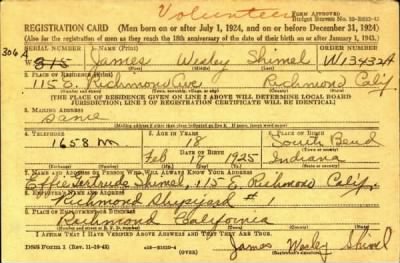 Volunteer
FORM APPROVED
REGISTRATION CARD (Men born on or after July 1, 1924, and on or before December 31, 1924)
(Also for the registration of men as they reach the 18th anniversary of the date of their birth on or after January 1, 1943.)
306A
SERIAL NUMBER
ORDER NUMBER
W 315 James Wesley Shimel W13432A
2. PLACE OF RESIDENCE
115 E. Richmond Ave. Richmond Calif.
[THE PLACE OF RESIDENCE GIVEN ON LINE 2 ABOVE WILL DETERMINE LOCAL BOARD
JURISDICTION; LINE 2 OF REGISTRATION CERTIFICATE WILL BE IDENTICAL]
3. MAILING ADDRESS
Same
4. TELEPHONE 5. AGE IN YEARS 6. PLACE OF BIRTH
1658 18 South Bend
DATE OF BIRTH
Feb 17 1925 Indiana
7. NAME AND ADDRESS OF PERSON WHO WILL ALWAYS KNOW YOUR ADDRESS
Effie Gertrude Shimel, 115 E. Richmond Calif.
8. EMPLOYER'S NAME AND ADDRESS
Richmond Shipyard # 1
9. PLACE OF EMPLOYMENT OR BUSINESS
Richmond California
I AFFIRM THAT I HAVE VERIFIED ABOVE ANSWERS AND THAT THEY ARE TRUE.
DSS Form 1 (OVER) James Wesley Shimel